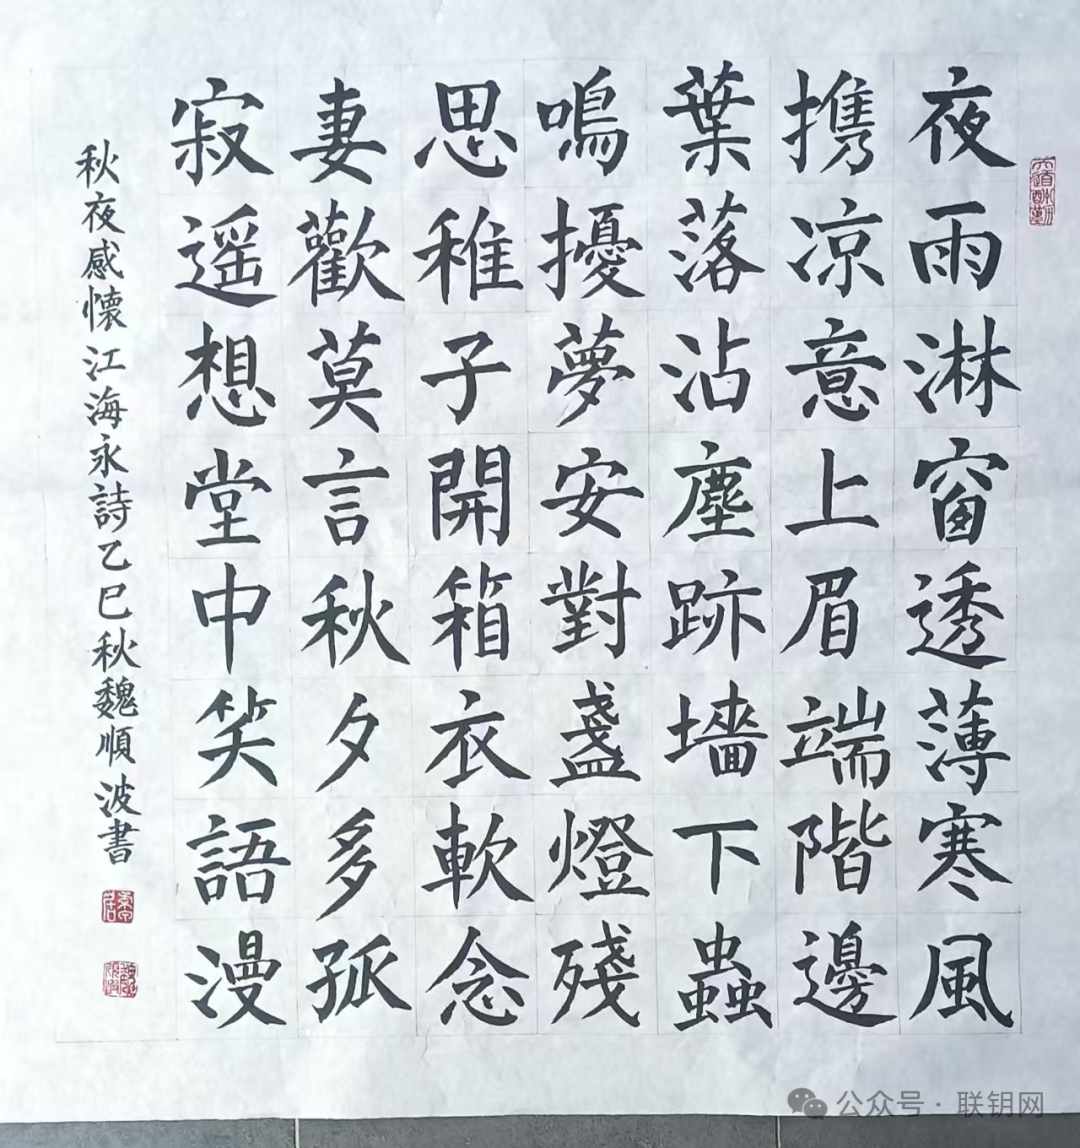 夜雨淋窗透薄寒風
携凉意上眉端階邊
葉落沾塵跡墻下蟲
鳴擾夢安對盞燈殘
思稚子開箱衣軟念
妻歡莫言秋夕多孤
寂遥想堂中笑語漫
秋夜感懷江海永詩乙巳秋魏順波書
公众号·联钥网